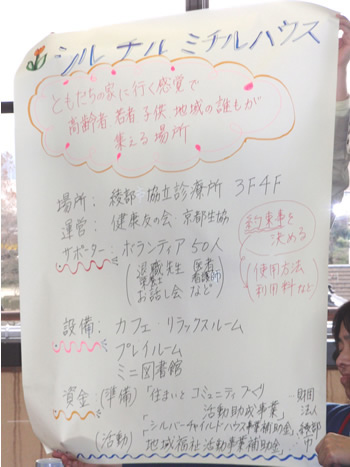 シルチルミチルハウス
ともだちの家に行く感覚で
高齢者 若者 子供 地域の誰もが
集える場所
場所：綾部 協立診療所 3F4F
運営：健康友の会・京都生協
サポーター：ボランティア 50人
（退職先生 医者
栄養士 看護師
お話し会 など）
約束事を
決める
（使用方法
利用料など）
設備：カフェ・リラックスルーム
プレイルーム
ミニ図書館
資金：（準備）「住まいとコミュニティづくり
活動助成事業」
財団
法人
（活動）「シルバーチャイルドハウス事業補助金」
地域福祉活動事業補助金」
綾部
市